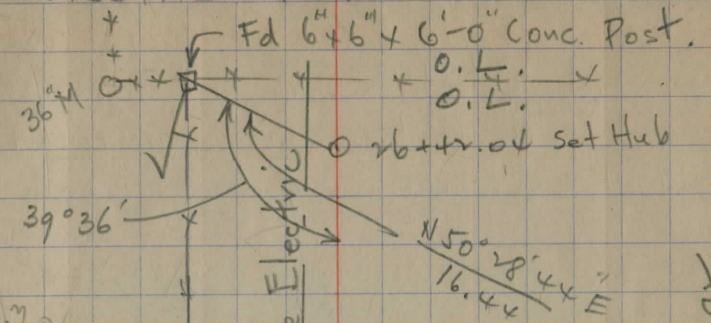 Fd 6"x6"x 6'-0" Conc. Post.
O.L.
O.L.
36"M
26+42.04 Set Hub
39°36'
Electric
N 50° 28' 44" E
16.44